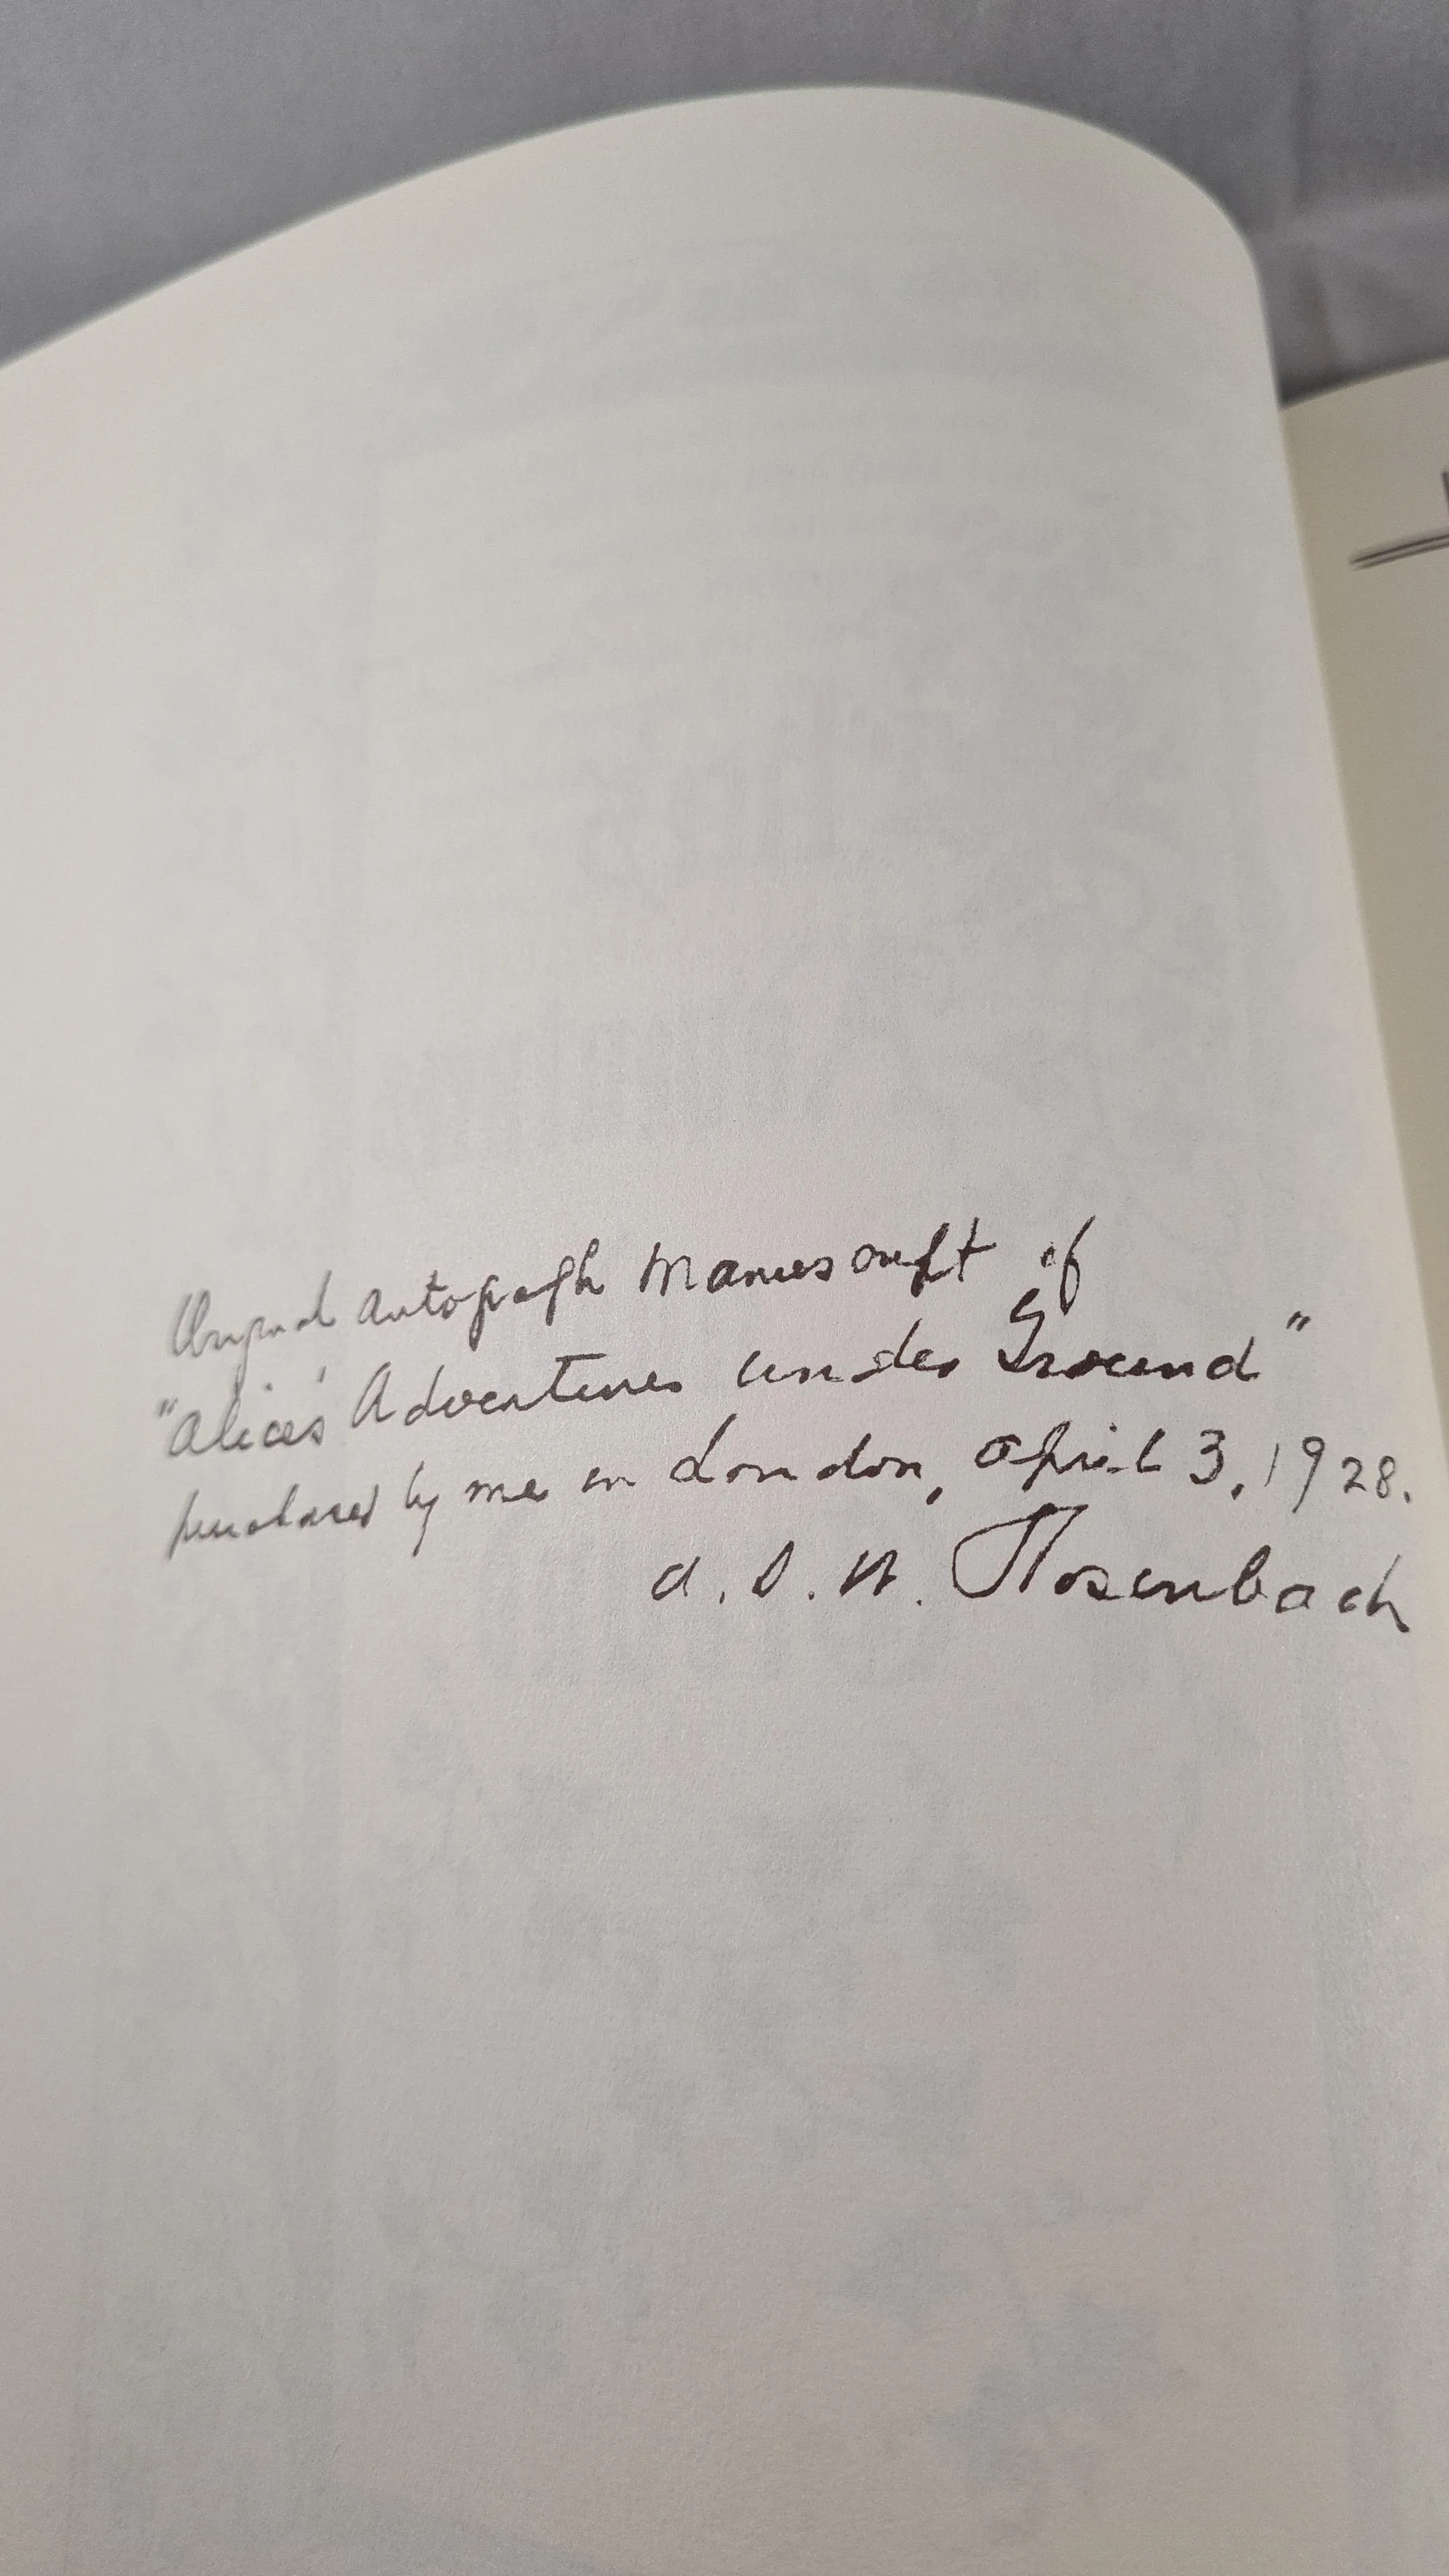 Original Autograph Manuscript of
"Alice's Adventures under Ground"
purchased by me in London, April 3, 1928.
A. S. W. Rosenbach